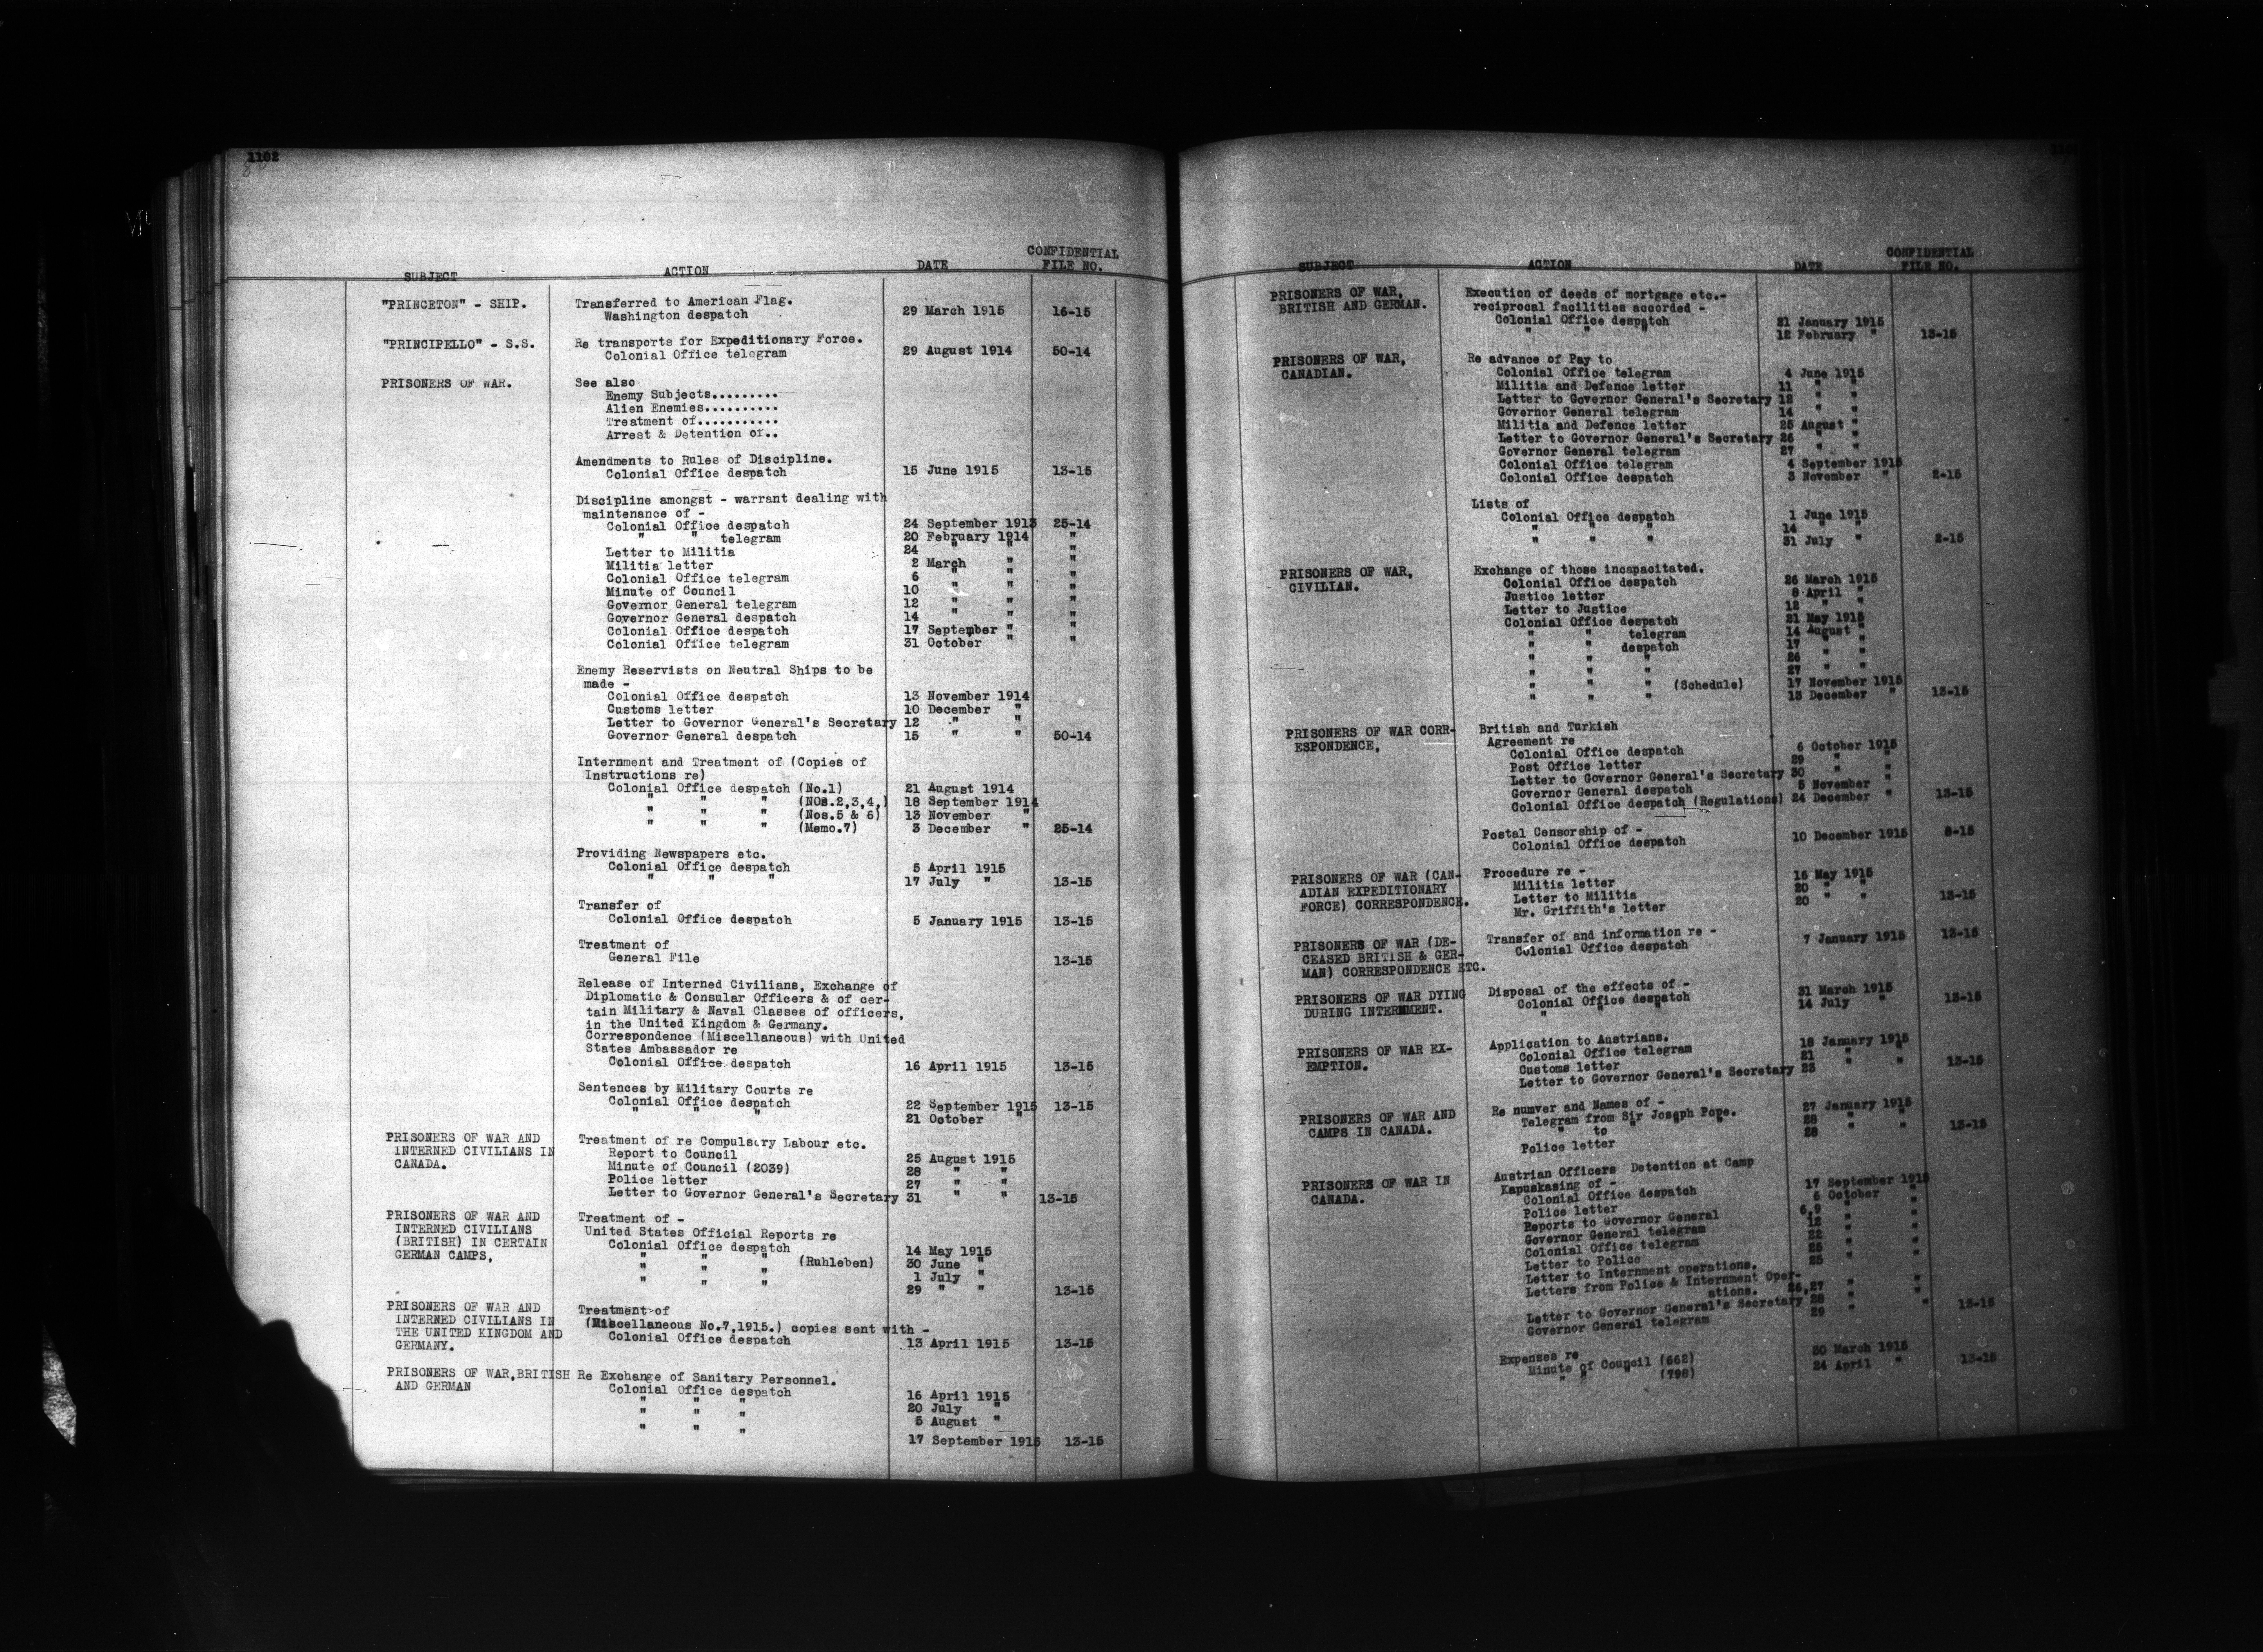 1102
SUBJECT ACTION DATE CONFIDENTIAL FILE NO.
"PRINCETON" - SHIP. Transferred to American Flag.
Washington despatch 29 March 1915 16-15
"PRINCIPELLO" - S.S. Re transports for Expeditionary Force.
Colonial Office telegram 29 August 1914 50-14
PRISONERS OF WAR. See also
Enemy Subjects.........
Alien Enemies..........
Treatment of...........
Arrest & Detention of..
Amendments to Rules of Discipline.
Colonial Office despatch 15 June 1915 13-15
Discipline amongst - warrant dealing with
maintenance of -
Colonial Office despatch 24 September 1913 25-14
" " telegram 20 February 1914 "
Letter to Militia 24 " " "
Militia letter 2 March " "
Colonial Office telegram 6 " " "
Minute of Council 10 " " "
Governor General telegram 12 " " "
Governor General despatch 14 " " "
Colonial Office despatch 17 September " "
Colonial Office telegram 31 October " "
Enemy Reservists on Neutral Ships to be
made -
Colonial Office despatch 13 November 1914
Customs letter 10 December "
Letter to Governor General's Secretary 12 " "
Governor General despatch 15 " " 50-14
Internment and Treatment of (Copies of
Instructions re)
Colonial Office despatch (No.1) 21 August 1914
" " " (NOs.2,3,4,) 18 September 1914
" " " (Nos.5 & 6) 13 November "
" " " (Memo.7) 3 December " 25-14
Providing Newspapers etc.
Colonial Office despatch 5 April 1915
" " " 17 July " 13-15
Transfer of
Colonial Office despatch 5 January 1915 13-15
Treatment of
General File 13-15
Release of Interned Civilians, Exchange of
Diplomatic & Consular Officers & of cer-
tain Military & Naval Classes of officers,
in the United Kingdom & Germany.
Correspondence (Miscellaneous) with United
States Ambassador re
Colonial Office despatch 16 April 1915 13-15
Sentences by Military Courts re
Colonial Office despatch 22 September 1915 13-15
" " " 21 October "
PRISONERS OF WAR AND Treatment of re Compulsory Labour etc.
INTERNED CIVILIANS IN Report to Council 25 August 1915
CANADA. Minute of Council (2039) 28 " "
Police letter 27 " "
Letter to Governor General's Secretary 31 " " 13-15
PRISONERS OF WAR AND Treatment of -
INTERNED CIVILIANS United States Official Reports re
(BRITISH) IN CERTAIN Colonial Office despatch 14 May 1915
GERMAN CAMPS, " " " (Ruhleben) 30 June "
" " " 1 July "
29 " " 13-15
PRISONERS OF WAR AND Treatment of
INTERNED CIVILIANS IN (Miscellaneous No.7,1915.) copies sent with -
THE UNITED KINGDOM AND Colonial Office despatch 13 April 1915 13-15
GERMANY.
PRISONERS OF WAR,BRITISH Re Exchange of Sanitary Personnel.
AND GERMAN Colonial Office despatch 16 April 1915
" " " 20 July "
" " " 5 August "
" " " 17 September 1915 13-15
SUBJECT ACTION DATE CONFIDENTIAL FILE NO.
PRISONERS OF WAR, Execution of deeds of mortgage etc.-
BRITISH AND GERMAN. reciprocal facilities accorded -
Colonial Office despatch 21 January 1915
" " " 12 February " 13-15
PRISONERS OF WAR, Re advance of Pay to
CANADIAN. Colonial Office telegram 4 June 1915
Militia and Defence letter 11 " "
Letter to Governor General's Secretary 12 " "
Governor General telegram 14 " "
Militia and Defence letter 25 August "
Letter to Governor General's Secretary 26 " "
Governor General telegram 27 " "
Colonial Office telegram 4 September 1915
Colonial Office despatch 3 November " 2-15
Lists of
Colonial Office despatch 1 June 1915
" " " 14 " "
" " " 31 July " 2-15
PRISONERS OF WAR, Exchange of those incapacitated.
CIVILIAN. Colonial Office despatch 26 March 1915
Justice letter 8 April "
Letter to Justice 12 " "
Colonial Office despatch 21 May 1915
" " telegram 14 August "
" " despatch 17 " "
" " " 26 " "
" " " 27 " "
" " " (Schedule) 17 November 1915
" " " 13 December " 13-15
PRISONERS OF WAR CORR- British and Turkish
ESPONDENCE, Agreement re
Colonial Office despatch 6 October 1915
Post Office letter 29 " "
Letter to Governor General's Secretary 30 " "
Governor General despatch 5 November "
Colonial Office despatch (Regulations) 24 December " 13-15
Postal Censorship of -
Colonial Office despatch 10 December 1915 8-15
PRISONERS OF WAR (CAN- Procedure re -
ADIAN EXPEDITIONARY Militia letter 15 May 1915
FORCE) CORRESPONDENCE. Letter to Militia 20 " "
Mr. Griffith's letter 20 " " 13-15
PRISONERS OF WAR (DE- Transfer of and information re -
CEASED BRITISH & GER- Colonial Office despatch 7 January 1915 13-15
MAN) CORRESPONDENCE ETC.
PRISONERS OF WAR DYING Disposal of the effects of -
DURING INTERNMENT. Colonial Office despatch 31 March 1915
" " " 14 July " 13-15
PRISONERS OF WAR EX- Application to Austrians.
EMPTION. Colonial Office telegram 18 January 1915
Customs letter 21 " "
Letter to Governor General's Secretary 23 " " 13-15
PRISONERS OF WAR AND Re numver and Names of -
CAMPS IN CANADA. Telegram from Sir Joseph Pope. 27 January 1915
" to " " " 28 " "
Police letter 28 " " 13-15
PRISONERS OF WAR IN Austrian Officers Detention at Camp
CANADA. Kapuskasing of -
Colonial Office despatch 17 September 1915
Police letter 6 October "
Reports to Governor General 6,9 " "
Governor General telegram 12 " "
Colonial Office telegram 22 " "
Letter to Police 25 " "
Letter to Internment operations. 25 " "
Letters from Police & Internment Oper-
ations. 26,27 " "
Letter to Governor General's Secretary 28 " "
Governor General telegram 29 " " 13-15
Expenses re
Minute of Council (662) 30 March 1915
" " " (798) 24 April " 13-15